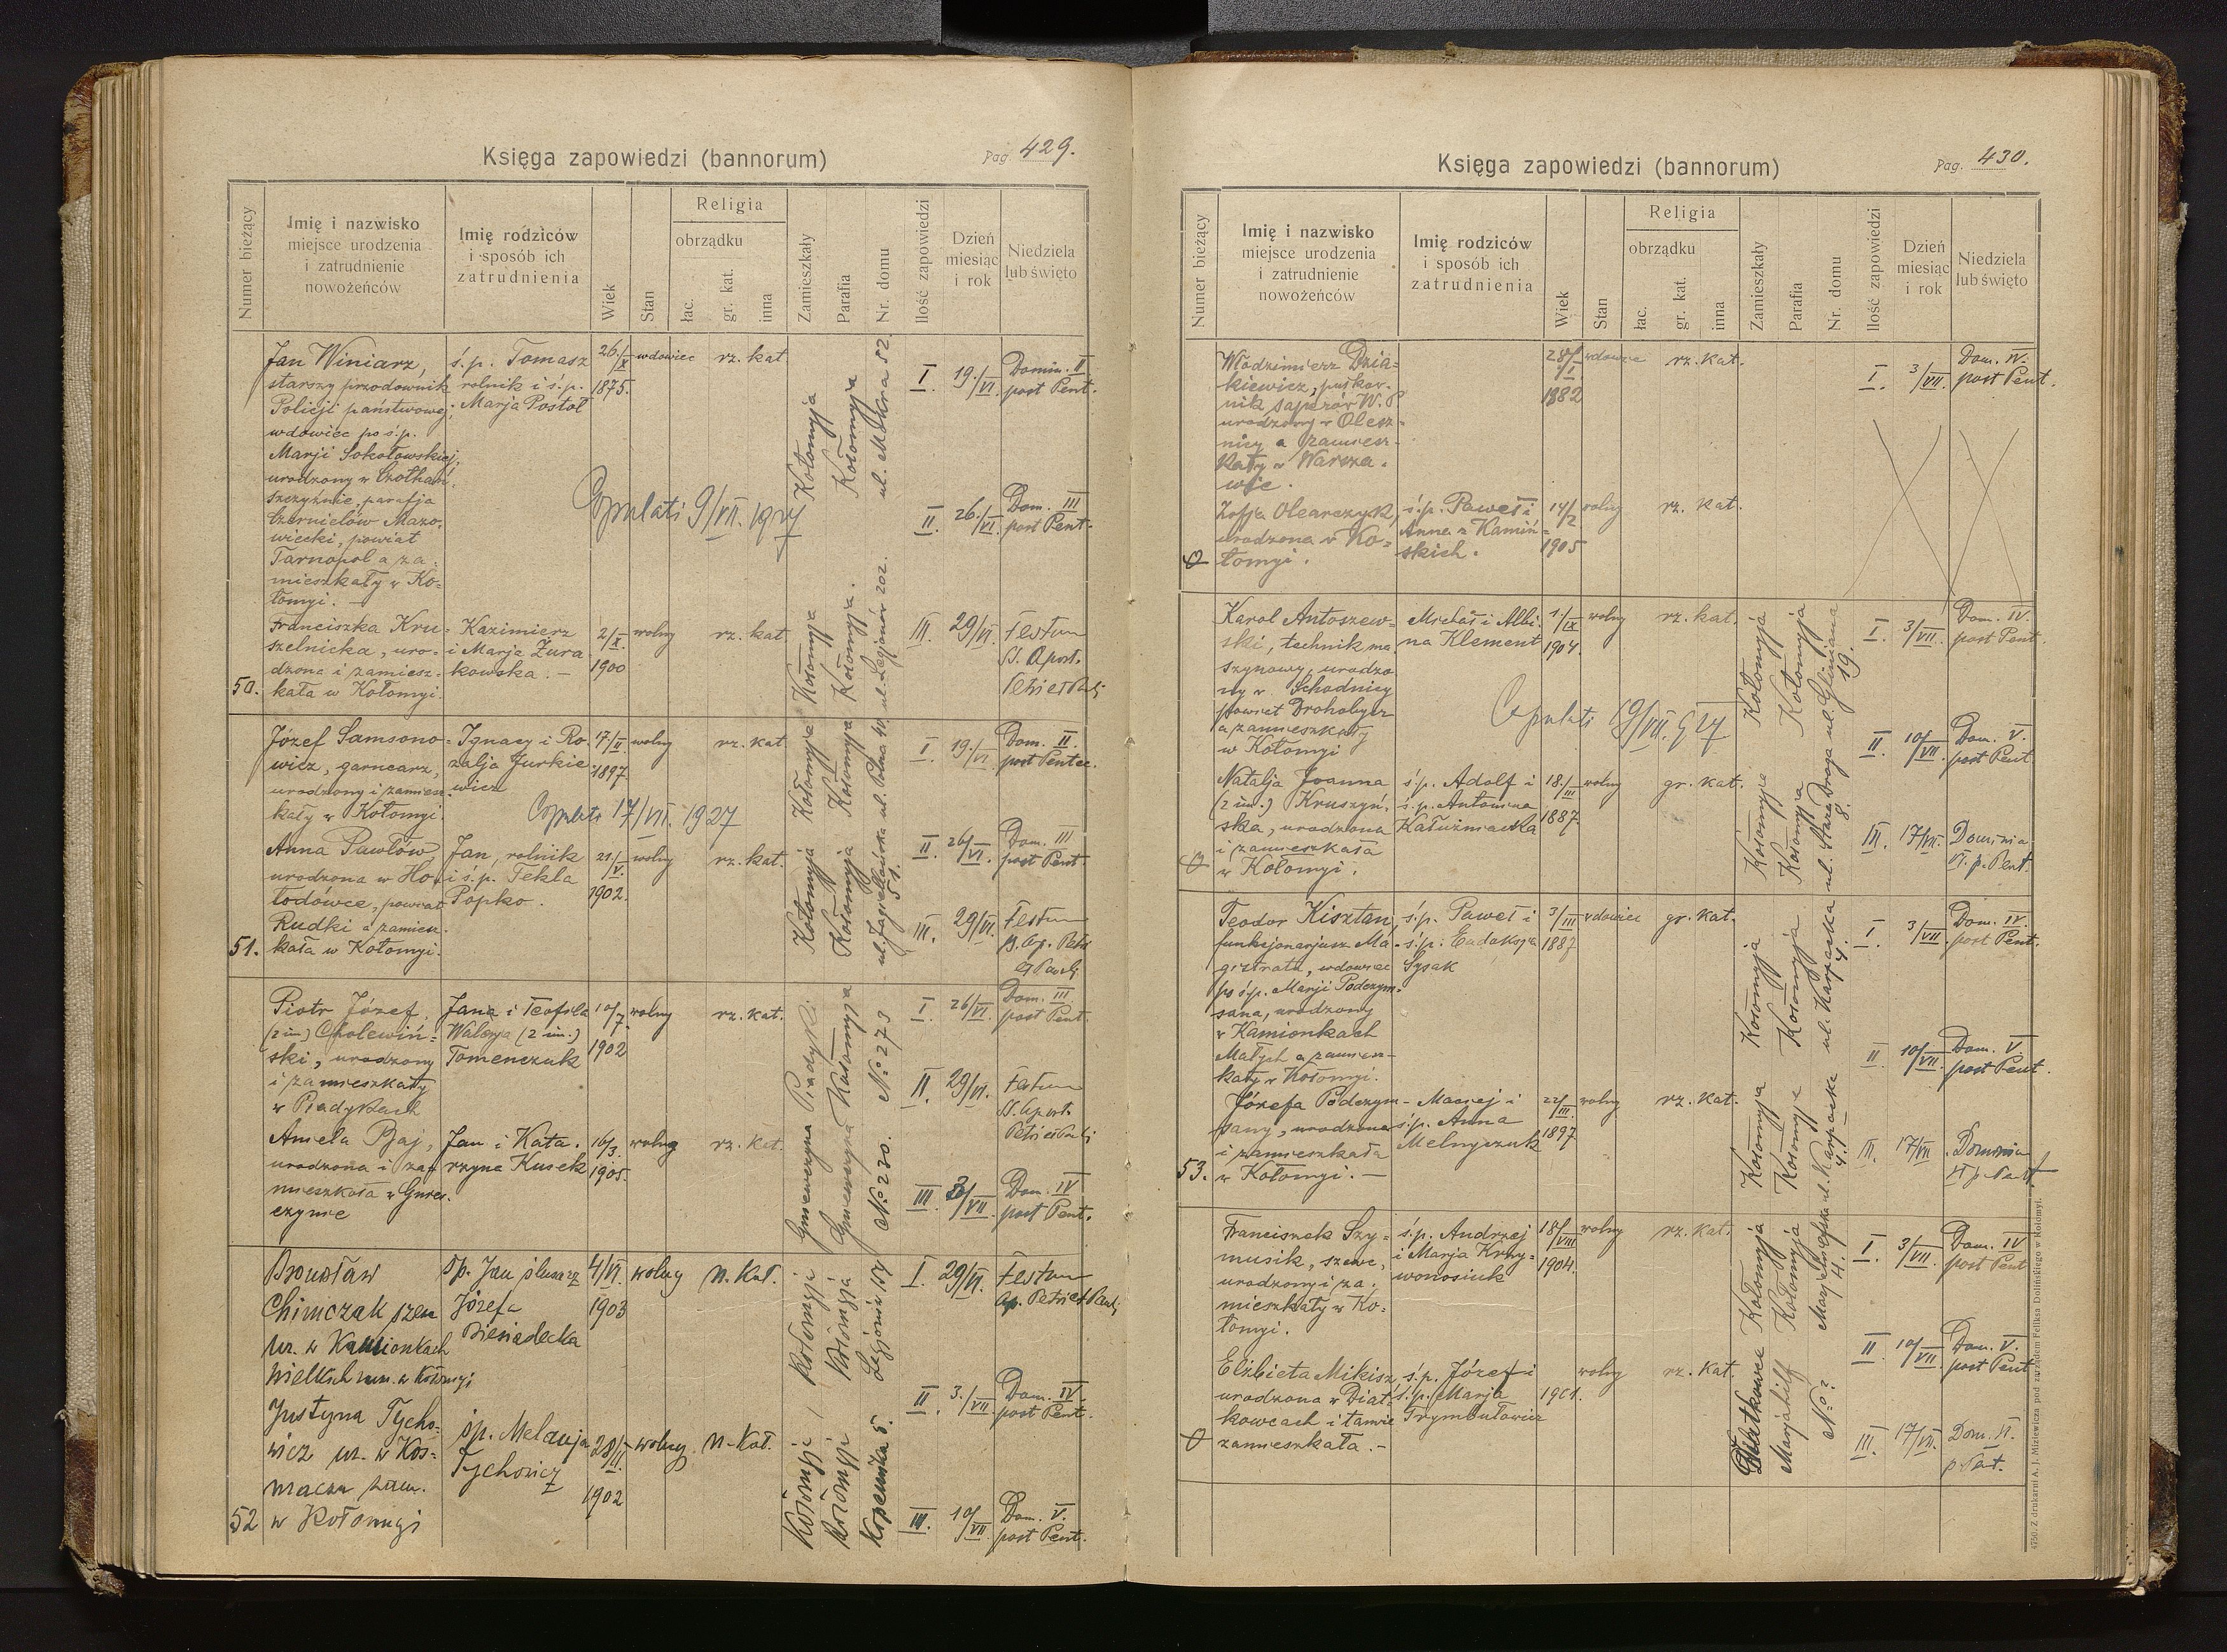 Księga zapowiedzi (bannorum)
Pag. 429.
Numer bieżący
Imię i nazwisko
miejsce urodzenia
i zatrudnienie
nowożeńców
Imię rodziców
i sposób ich
zatrudnienia
Wiek
Stan
Religia
obrządku
łac.
gr. kat.
inna
Zamieszkały
Parafia
Nr. domu
Ilość zapowiedzi
Dzień
miesiąc
i rok
Niedziela
lub święto
Jan Winiarz,
starszy przodownik
Policji państwowej,
wdowiec po ś.p.
Marji Sokołowskiej,
urodzony w
szczyźnie, parafja
Czernielów Mazo-
wiecki, powiat
Tarnopol a za-
mieszkały w Ko-
łomyi. —
ś.p. Tomasz
rolnik i ś.p.
Marja Postoł
26/X
1875.
wdowiec
rz. kat
Kołomyja
Kołomyja
ul. Mokra 52
I. 19./VI Domin. II
post Pent.
II. 26./VI Dom. III
post Pent.
Copulati 9/VII. 1927
50.
Franciszka Kru-
szelnicka, uro-
dzona i zamiesz-
kała w Kołomyi.
Kazimierz
i Marja Żura
kowska. —
2/XI.
1900
wolny
rz. kat
Kołomyja
Kołomyja.
ul. Legjonów 202.
III. 29/VI. Festum
SS. Apost.
Petri et Pauli
Józef Samsono-
wicz, garncarz,
urodzony i zamiesz-
kały w Kołomyi.
Ignacy i Ro
zalja Jurkie
wicz
17/II
1897.
wolny
rz. kat.
Kołomyja
Kołomyja
ul. Polna 40.
I. 19./VI. Dom. II.
post Pentec.
Copulati 17/VII. 1927
51.
Anna Pawłów
urodzona w Ho-
łodówce, powiat
Rudki a zamiesz-
kała w Kołomyi.
Jan, rolnik
i ś.p. Tekla
Popko.
21./V.
1902.
wolny
rz. kat.
Kołomyja
Kołomyja
ul. Jagiellońska
51.
II. 26/VI. Dom. III
post Pent.
III. 29/VI. Festum
SS. Ap. Petri
et Pauli
Piotr Józef,
(2 im.) Cholewiń-
ski, urodzony
i zamieszkały
w Piadykach
Jana i Teofila
Walerja (2 im.)
Tomenczuk
10/7.
1902
wolny
rz. kat.
Piadyki.
Kołomyja
No 273
I. 26/VI. Dom. III.
post Pent.
II. 29/VI. Festum
SS. Apost.
Petri et Pauli
Aniela Baj,
urodzona i za-
mieszkała w Gnies-
czynie
Jan i Kata-
rzyna Kusek
16/3.
1905.
wolny
rz. kat.
No 230.
III 3/VII. Dom. IV
post Pent.
Bronisław
Chimczak szew
ur. w Kamionkach
Wielkich zam. w Kołomyji
śp. Jan ślusarz
Józefa
Biesiadecka
4/VI.
1903
wolny
rz. kat.
Kołomyja
Kołomyja
Legjonów 154
I. 29/VI. Festum
Ap. Petri et Pauli
52
Justyna Tycho-
wicz ur. w Kos-
maczu zam.
w Kołomyji
śp. Melanja
Tychowicz
28/II.
1902
wolny
rz. kat.
Kołomyji
Kołomyji
Kopernika 5.
II. 3./VII. Dom. IV.
post Pent.
III. 10/VII Dom. V.
post Pent.
Księga zapowiedzi (bannorum)
Pag. 430.
Numer bieżący
Imię i nazwisko
miejsce urodzenia
i zatrudnienie
nowożeńców
Imię rodziców
i sposób ich
zatrudnienia
Wiek
Stan
Religia
obrządku
łac.
gr. kat.
inna
Zamieszkały
Parafia
Nr. domu
Ilość zapowiedzi
Dzień
miesiąc
i rok
Niedziela
lub święto
Włodzimierz Dzia-
kiewicz, pułkow-
nik saperów W. P
urodzony w Olesz-
nicy a zamiesz-
kały w Warsza-
wie.
28/I
1882
wdowiec
rz. kat.
I. 3/VII. Dom. IV.
post Pent.
Zofja Olearczyk,
urodzona w Ko-
łomyi.
ś.p. Paweł i
Anna z Kamiń-
skich.
14/2
1905
wolny
rz. kat.
Karol Antoszew-
ski, technik ma
szynowy, urodzo
ny w Schodnicy
powiat Drohobycz
a zamieszkały
w Kołomyi
Michał i Albi-
na Klement
1./IX
1904.
wolny
rz. kat.
Kołomyja
Kołomyja
ul. Gliniana
19.
I. 3/VII. Dom. IV.
post Pent.
Copulati 19/VII. 927
Natalja Joanna
(2 im.) Kruszyń-
ska, urodzona
i zamieszkała
w Kołomyi.
ś.p. Adolf i
ś.p. Antonina
Kałużniacka
18./III
1887.
wolny
gr. kat.
Kołomyja
Kołomyja
ul. Stara Droga
8.
II. 10/VII. Dom. V.
post Pent
III. 17/VII. Dominica
VI. p. Pent.
Teodor Kisztan,
funkcjonarjusz Ma-
gistratu, wdowiec
po ś.p. Marji Podczym-
sana, urodzony
w Kamionkach
Małych a zamiesz-
kały w Kołomyi.
ś.p. Paweł i
ś.p. Eudoksja
Sysak
3/III
1887
wdowiec
gr. kat.
Kołomyja
Kołomyja
ul. Karpacka
4.
I. 3/VII. Dom. IV.
post Pent.
II 10/VII. Dom. V.
post Pent.
53.
Józefa Podczym-
sany, urodzona
i zamieszkała
w Kołomyi. —
Maciej i
ś.p. Anna
Melnyczuk
22/III.
1897
wolny
rz. kat.
Kołomyja
Kołomyja
ul. Karpacka
4.
III. 17/VII. Dominica
VI p. Pent.
Franciszek Szy-
musik, szewc,
urodzony i za-
mieszkały w Ko-
łomyi.
ś.p. Andrzej
i Marja Krzy-
wonosiuk
18/VIII
1904.
wolny
rz. kat.
Kołomyja
Kołomyja
4.
I. 3/VII. Dom. IV
post Pent
II 10/VII. Dom. V.
post Pent
Elżbieta Mikisz,
urodzona w Diat-
kowcach i tamże
zamieszkała. —
ś.p. Józef i
ś.p. Marja
Trymbułowicz
1901.
wolny
rz. kat.
Diatkowce
Marjahilf
No ?
III. 17/VII. Dom. VI.
p. Pent.
4750. Z drukarni A. J. Miziewicza pod zarządem Feliksa Dolińskiego w Kołomyi.